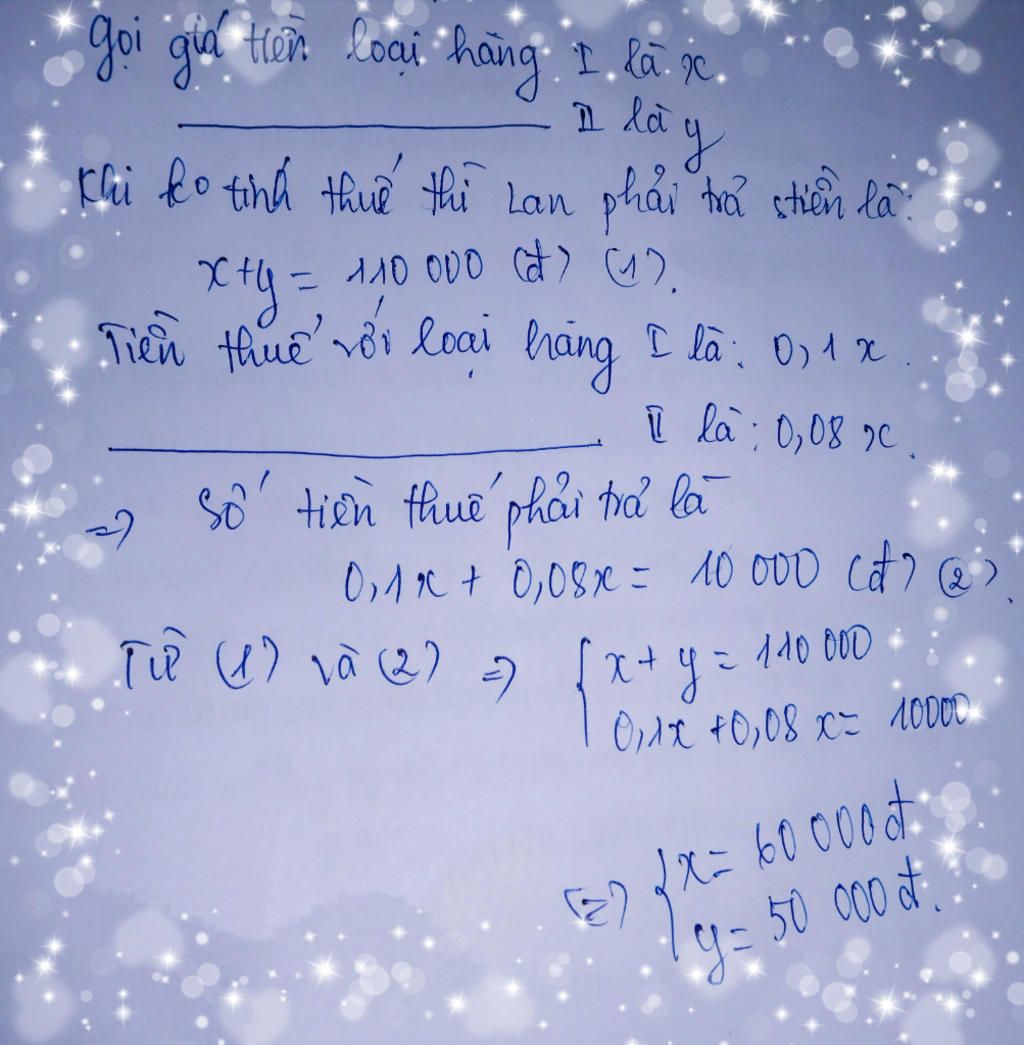 Gọi giá tiền loại hàng I là x.
II là y
Khi ko tính thuế thì Lan phải trả stiền là:
x+y = 110 000 (đ) (1).
Tiền thuế với loại hàng I là: 0,1x.
II là: 0,08x.
=> Số tiền thuế phải trả là
0,1x + 0,08x = 10 000 (đ) (2).
Từ (1) và (2) => { x + y = 110 000
0,1x + 0,08x = 10000
(=) { x = 60 000 đ
y = 50 000 đ.